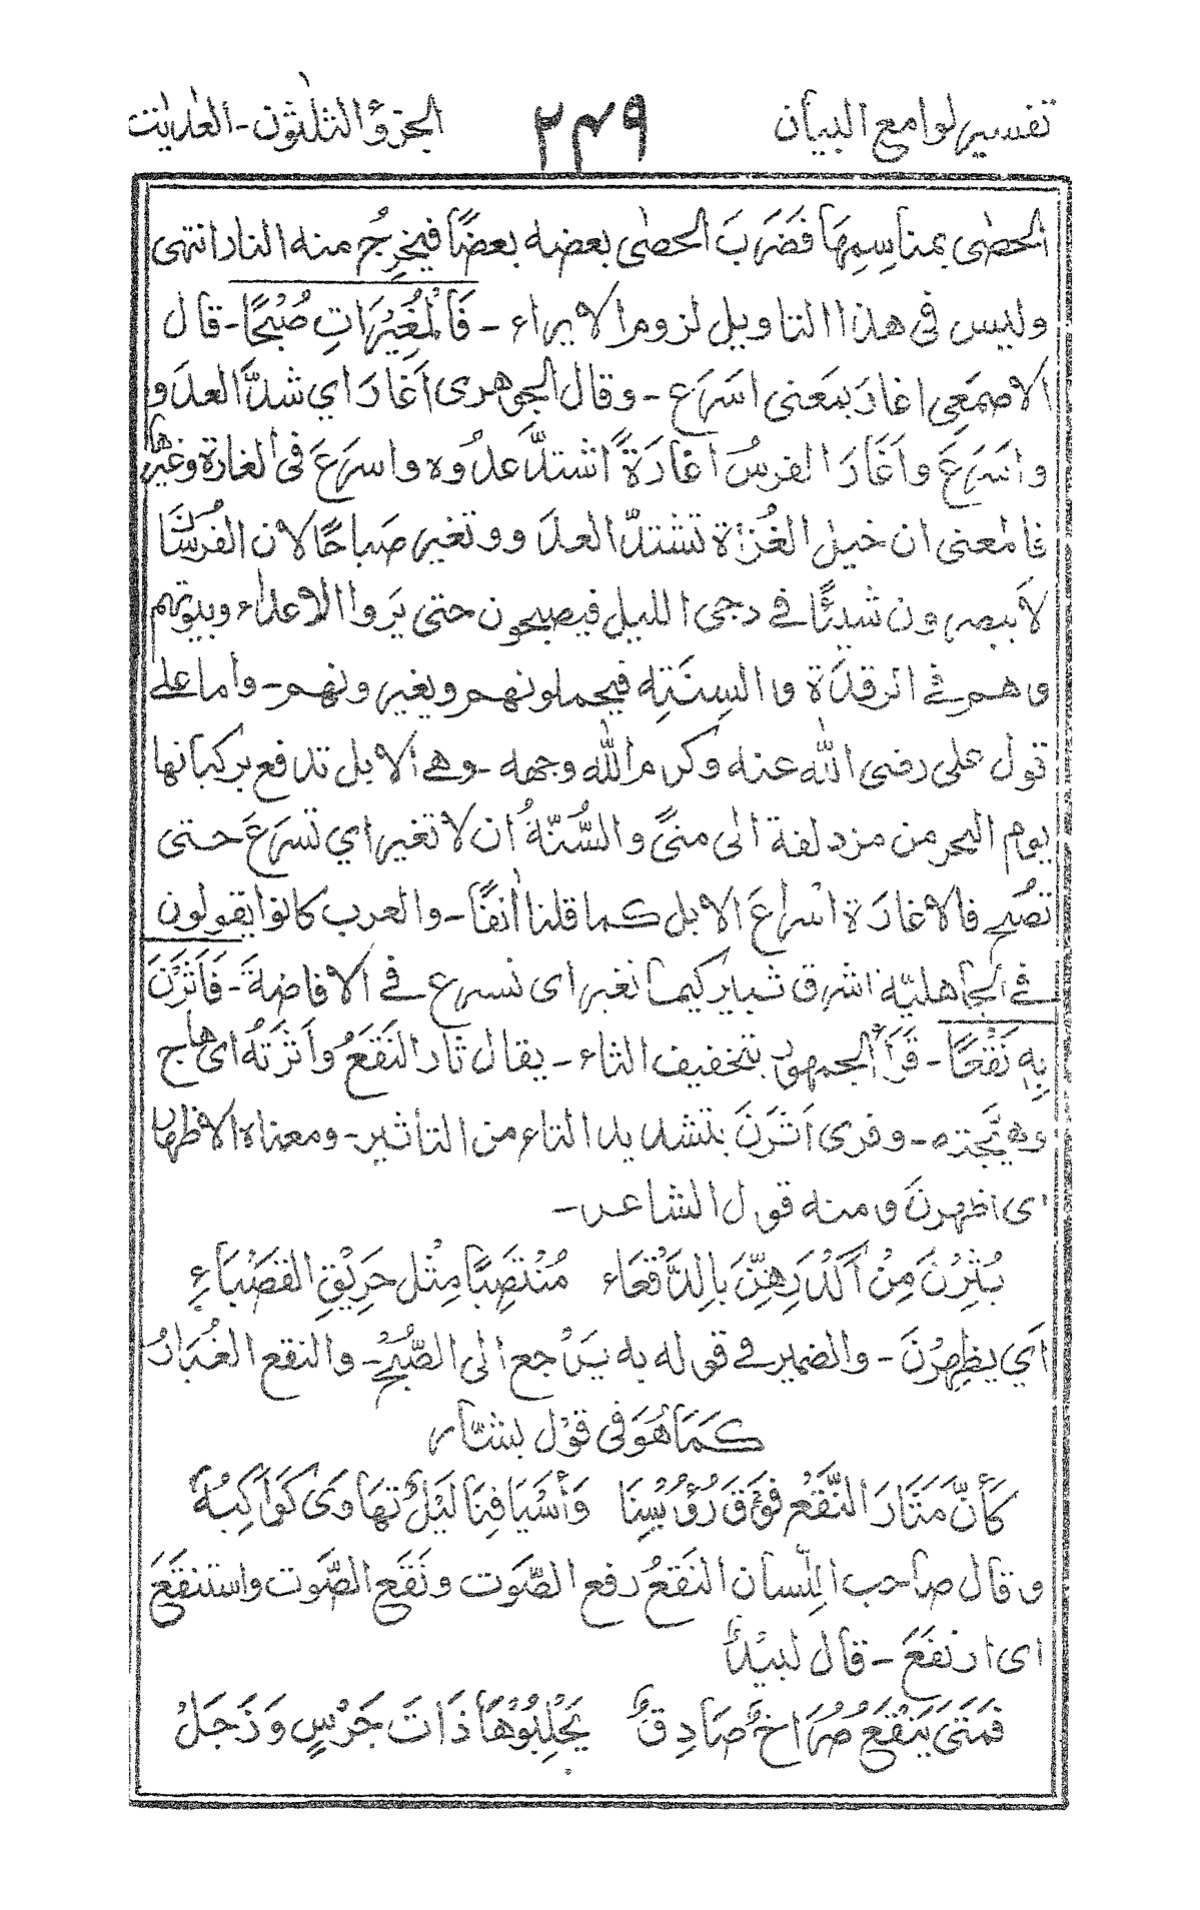 تفسير لوامع البيان ٢٤٩ الجزؤ الثلٰثون - العٰديٰت
الحصٰى بمناسِمِهَا فَضَرَبَ الحصٰى بعضه بعضًا فيخرِجُ منه النار انتهى
وليس فى هذا التاويل لزوم الايراء - فَالْمُغِيْرَاتِ صُبْحًا - قال
الاصمَعِى اغارَ بمَعنى اسَرَع - وقال الجوهرى اَغَارَ اي شدَّ العدَو
واسَرَعَ واَغَارَ الفرسُ اغَارَةً اشتدَّ عدُوه واسرَعَ فى الغارة وغيْرها
فالمعنى ان خيل الغُزاة تشتدّ العدَ وو تغير صباحًا لان الفُرسَا
لا يبصرون شيئًا فے دجى الليل فيصبحون حتى يَروا الاعداء وبيوتهم
وهم فے الرقدَة والسِنَتِه فيحملونهم ويغيرونهم - واما علے
قول على رضى الله عنه وكرم الله وجهه - وهے الابل تدفع بركبانها
يوم النحر من مزدلفة الٰى منىً والسُّنّةُ ان لا تغير اي تسَرعَ حتى
تصُبح فالاغارَة اسْراعَ الابل كما قلنا اٰنفًا - والعرب كانوا يقولون
فے الجاهليّة اشرق ثبير كيما نغير اى نسرع فے الافاضةَ - فَاَثَرْنَ
بِهٖ نَقْعًا - قَرَأَ الجمهور بتخفيف الثاء - يقال ثَار النَقَعُ واَثَرَتهُ اى هاج
وهيّجته - وقرى اَثَرَنَ بتشديد الثاء من التأثير - ومعناه الاظهار
اى اظهرنَ ومنه قول الشاعر -
يُثِرْنَ مِنْ اَكْدَرِهِنَّ بِالدَّقْعَاء مُنْتَصِبًا مِثْلَ حَرِيْقِ القَصْبَاءِ
اَي يظهِرْنَ - والضمير فے قوله به يَرْجع الى الصُّبْحِ - والنقع الغُبَارُ
كَمَا هُوَ فى قوْل بشّار
كَأَنَّ مَثَارَ النَّقَعْ فَوْقَ رُؤُسِنَا وَأَسْيَافِنَا لَيْلٌ تَهَاوٰى كَوَاكِبُهُ
وقال صاحب اللِّسان النَقَعُ رفع الصَّوَت ونَقَع الصَّوت واستنقَعَ
اى ارتفَعَ - قال لبيْدٌ
فَمَتَىَ يَنْقَعُ صُرَاخٌ صَادِقٌ يَحْلِبُوْهَا ذَاتَ جَرْسٍ وَزَجَلْ